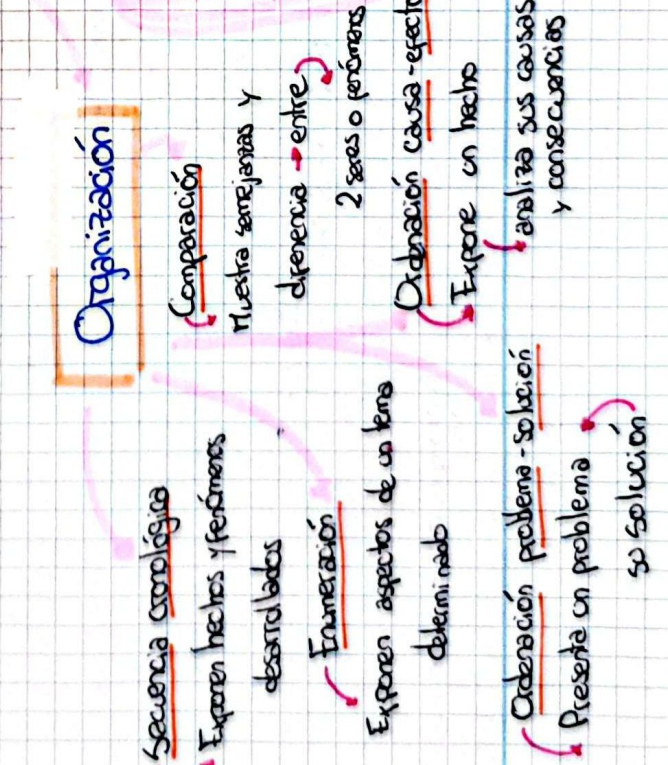 Organización
Secuencia cronológica
Exponen hechos y fenómenos
desarrollados
Enumeración
Exponen aspectos de un tema
determinado
Ordenación problema-solución
Presenta un problema
su solución
Comparación
Muestra semejanzas y
diferencia entre
2 seres o fenómenos
Ordenación causa-efecto
Expone un hecho
analiza sus causas
y consecuencias